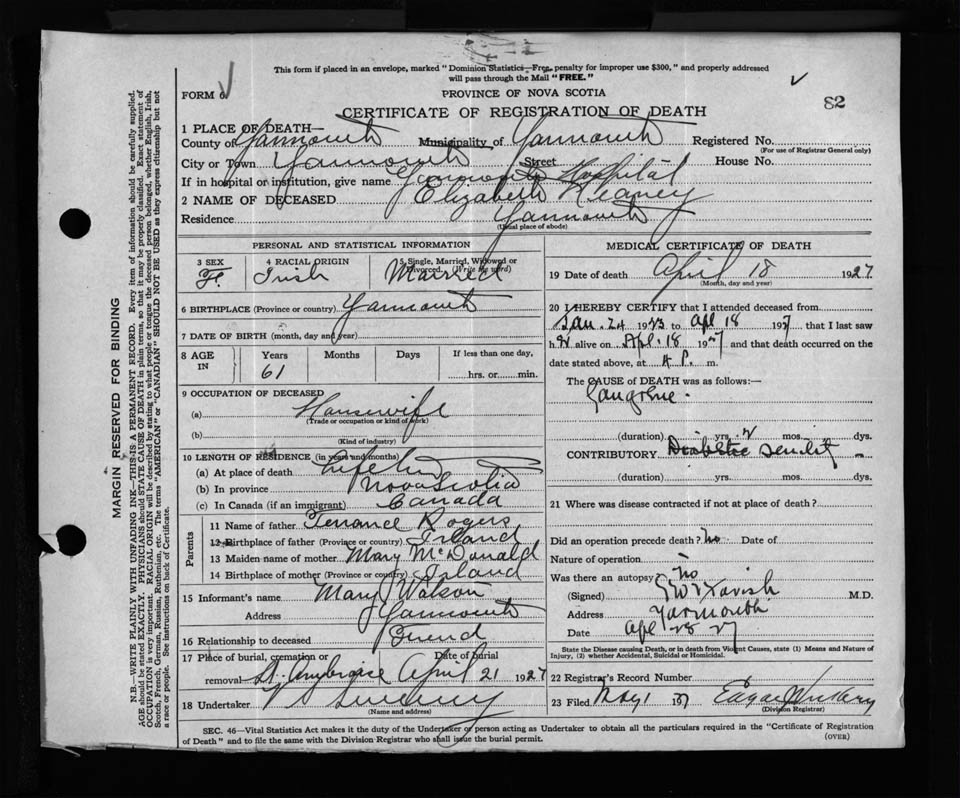 This form if placed in an envelope, marked "Dominion Statistics—Free, penalty for improper use $300," and properly addressed
will pass through the Mail "FREE."
FORM 6 PROVINCE OF NOVA SCOTIA 82
CERTIFICATE OF REGISTRATION OF DEATH
1 PLACE OF DEATH—
County of Yarmouth Municipality of Yarmouth Registered No.
(For use of Registrar General only)
City or Town Yarmouth Street House No.
If in hospital or institution, give name Yarmouth Hospital
2 NAME OF DECEASED Elizabeth
Residence Yarmouth
(Usual place of abode)
PERSONAL AND STATISTICAL INFORMATION
3 SEX 4 RACIAL ORIGIN 5 Single, Married, Widowed or
Divorced. (Write the word)
F. Irish Married
6 BIRTHPLACE (Province or country) Yarmouth
7 DATE OF BIRTH (month, day and year)
8 AGE IN Years Months Days If less than one day,
61 hrs. or min.
9 OCCUPATION OF DECEASED
(a) Housewife
(Trade or occupation or kind of work)
(b)
(Kind of industry)
10 LENGTH OF RESIDENCE (in years and months)
(a) At place of death Life
(b) In province Nova Scotia
(c) In Canada (if an immigrant) Canada
Parents
11 Name of father Terrance Rogers
12 Birthplace of father (Province or country) Irland
13 Maiden name of mother Mary McDonald
14 Birthplace of mother (Province or country) Irland
15 Informant's name Mary Watson
Address Yarmouth
16 Relationship to deceased Friend
17 Place of burial, cremation or Date of burial
removal St. Ambroise April 21 1927
18 Undertaker Sweeney
(Name and address)
MEDICAL CERTIFICATE OF DEATH
19 Date of death April 18 1927
(Month, day and year)
20 I HEREBY CERTIFY that I attended deceased from
Jan. 24 1923 to Apl 18 1927 that I last saw
her alive on Apl. 18 1927 and that death occurred on the
date stated above, at P. m.
The CAUSE OF DEATH was as follows:—
Gangrene.
(duration) yrs. mos. dys.
CONTRIBUTORY Diabetic Senility
(duration) yrs. mos. dys.
21 Where was disease contracted if not at place of death?
Did an operation precede death? no Date of
Nature of operation
Was there an autopsy? no
(Signed) M.D.
Address Yarmouth
Date Apl 28 27
State the Disease causing Death, or in death from Violent Causes, state (1) Means and Nature of
Injury, (2) whether Accidental, Suicidal or Homicidal.
22 Registrar's Record Number
23 Filed May 1 1927 Edgar
(Division Registrar)
SEC. 46—Vital Statistics Act makes it the duty of the Undertaker or person acting as Undertaker to obtain all the particulars required in the "Certificate of Registration
of Death" and to file the same with the Division Registrar who shall issue the burial permit.
(OVER)
MARGIN RESERVED FOR BINDING
N.B.—WRITE PLAINLY WITH UNFADING INK—THIS IS A PERMANENT RECORD. Every item of information should be carefully supplied.
AGE should be stated EXACTLY. PHYSICIANS should STATE CAUSE OF DEATH in plain terms, so that it may be properly classified. Exact statement of
OCCUPATION is very important. RACIAL ORIGIN will be described by stating to what people or tongue the deceased person belonged, whether English, Irish,
Scotch, French, German, Russian, Ruthenian, etc. The terms "AMERICAN" or "CANADIAN" SHOULD NOT BE USED as they express citizenship but not
a race or people. See instructions on back of Certificate.